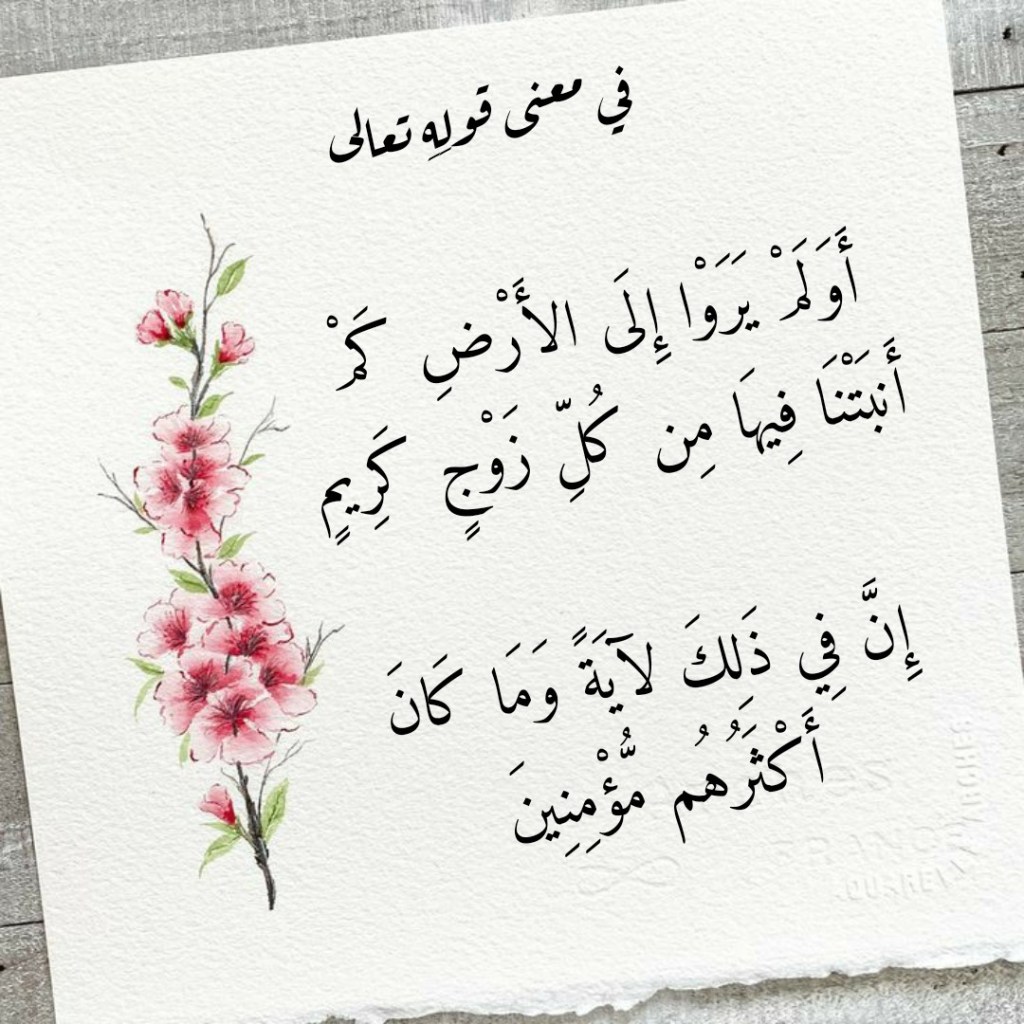 في معنى قولِهِ تعالى
أَوَلَمْ يَرَوْا إِلَى الأَرْضِ كَمْ
أَنبَتْنَا فِيهَا مِن كُلِّ زَوْجٍ كَرِيمٍ
إِنَّ فِي ذَلِكَ لآيَةً وَمَا كَانَ
أَكْثَرَُهُم مُّؤْمِنِينَ